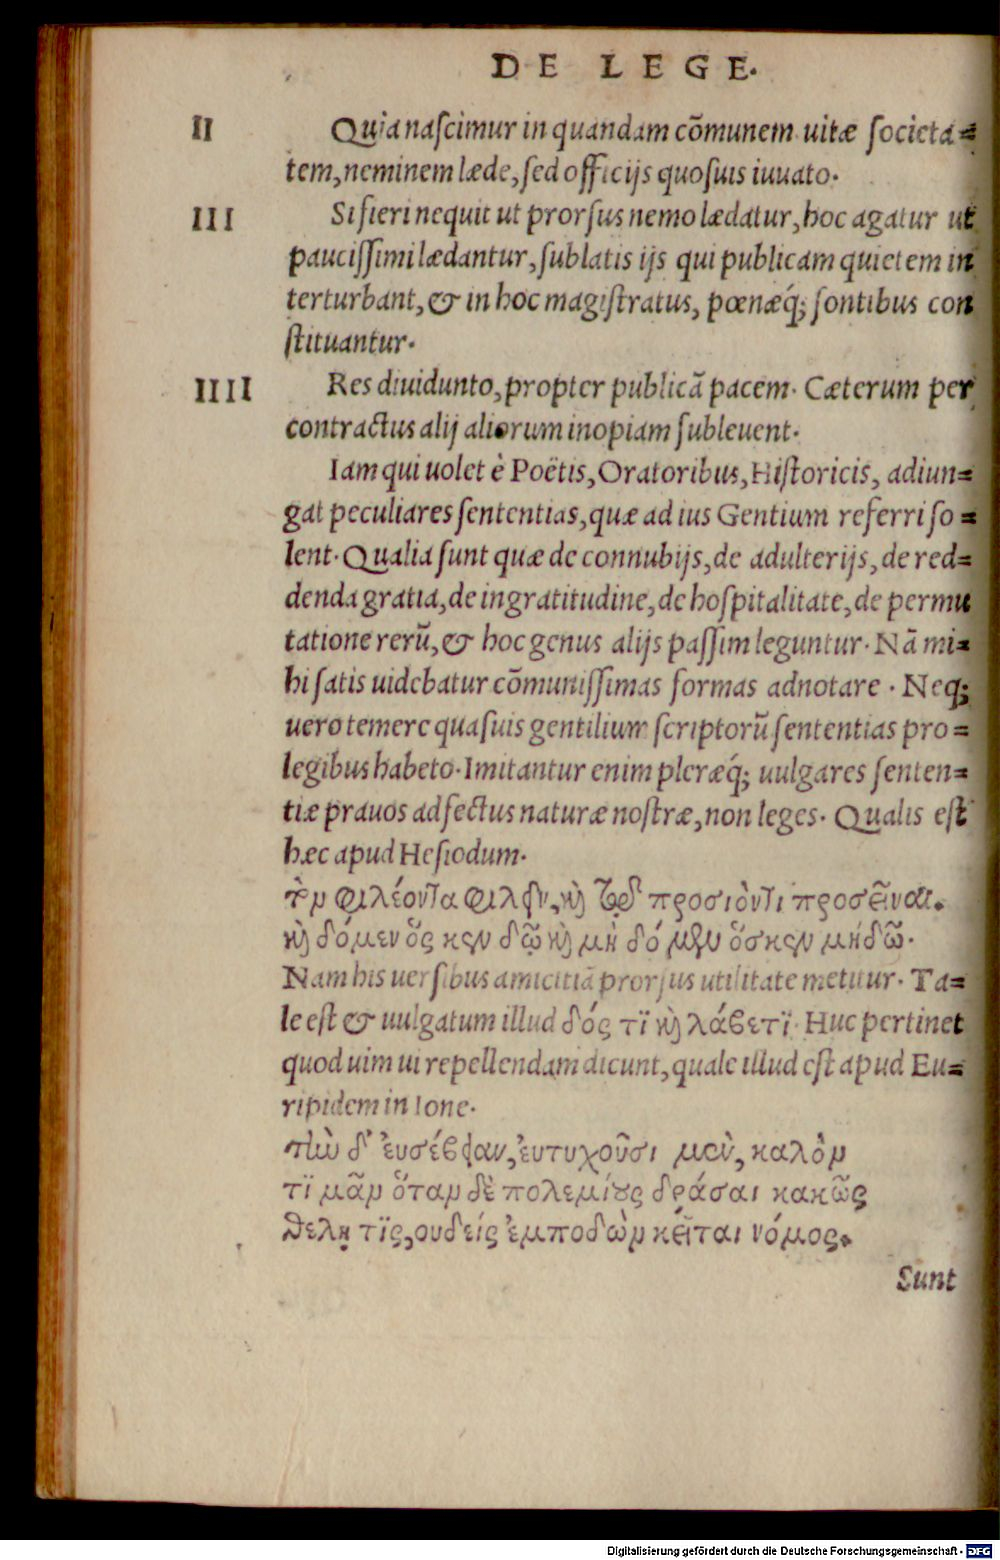 DE LEGE.
II Quia naſcimur in quandam cõmunem uitæ ſocieta=
tem, neminem læde, ſed officijs quoſuis iuuato.
III Si fieri nequit ut prorſus nemo lædatur, hoc agatur ut
pauciſſimi lædantur, ſublatis ijs qui publicam quietem in
terturbant, & in hoc magiſtratus, pœnæq́; ſontibus con
ſtituantur.
IIII Res diuidunto, propter publicã pacem. Cæterum per
contractus alij aliorum inopiam ſubleuent.
Iam qui uolet è Poëtis, Oratoribus, Hiſtoricis, adiun=
gat peculiares ſententias, quæ ad ius Gentium referri ſo=
lent. Qualia ſunt quæ de connubijs, de adulterijs, de red=
denda gratia, de ingratitudine, de hoſpitalitate, de permu
tatione rerũ, & hoc genus alijs paſſim leguntur. Nã mi=
hi ſatis uidebatur cõmuniſſimas formas adnotare. Neq;
uero temere quaſuis gentilium ſcriptorũ ſententias pro=
legibus habeto. Imitantur enim pleræq́; uulgares ſenten=
tiæ prauos adfectus naturæ noſtræ, non leges. Qualis eſt
hæc apud Heſiodum.
τὸν φιλέοντα φιλεῖν, καὶ τῷ προσιόντι προσεῖναι.
καὶ δόμεν ὅς κεν δῷ καὶ μὴ δόμεν ὅς κεν μὴ δῷ.
Nam his uerſibus amicitiã prorſus utilitate metitur. Ta=
le eſt & uulgatum illud δός τϊ καὶ λάβετϊ. Huc pertinet
quod uim ui repellendam dicunt, quale illud eſt apud Eu=
ripidem in Ione.
τὴν δ' ἐυσέβειαν, ἐυτυχοῦσι μὲν, καλὸν
τϊ μᾶν ὅταν δὲ πολεμίους δράσαι κακῶς
θέλῃ τϊς, ουδείς ἐμποδὼν κεῖται νόμος.
Sunt
Digitalisierung gefördert durch die Deutsche Forschungsgemeinschaft - DFG